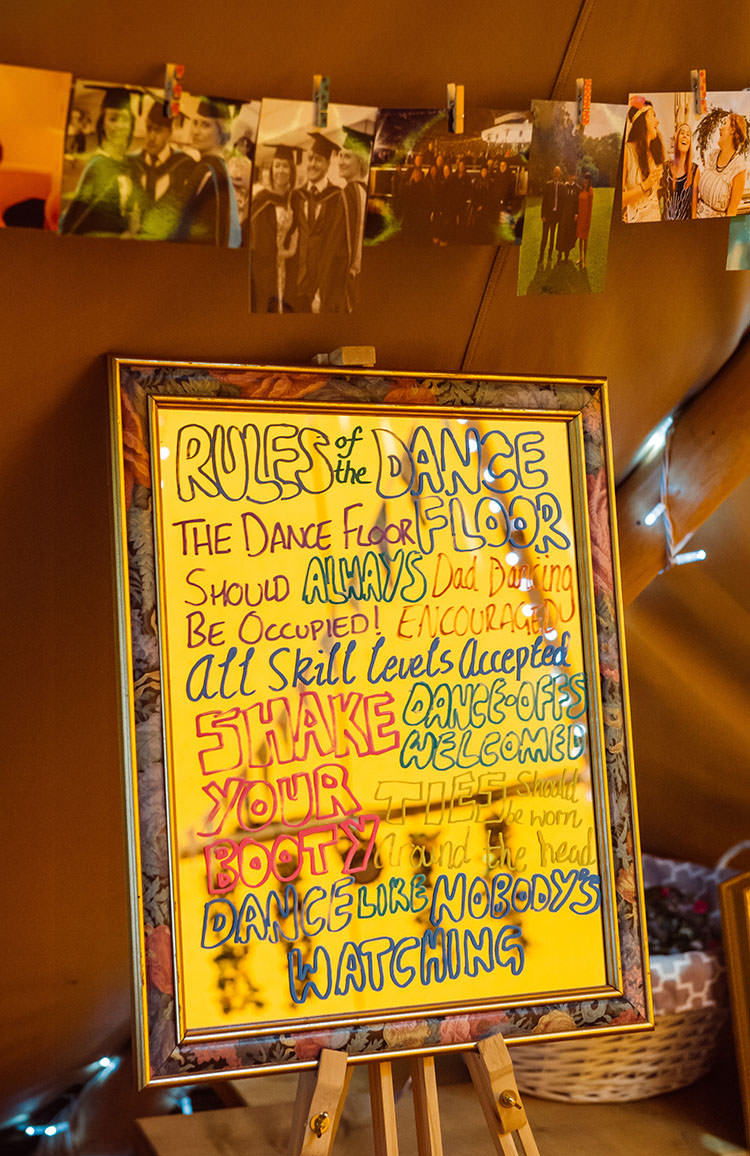 RULES of the DANCE
FLOOR
THE DANCE FLOOR
SHOULD ALWAYS
BE OCCUPIED!
Dad Dancing
ENCOURAGED
All Skill levels Accepted
SHAKE
YOUR
BOOTY
DANCE-OFFS
WELCOMED
TIES Should
be worn
around the head
DANCE LIKE NOBODY'S
WATCHING